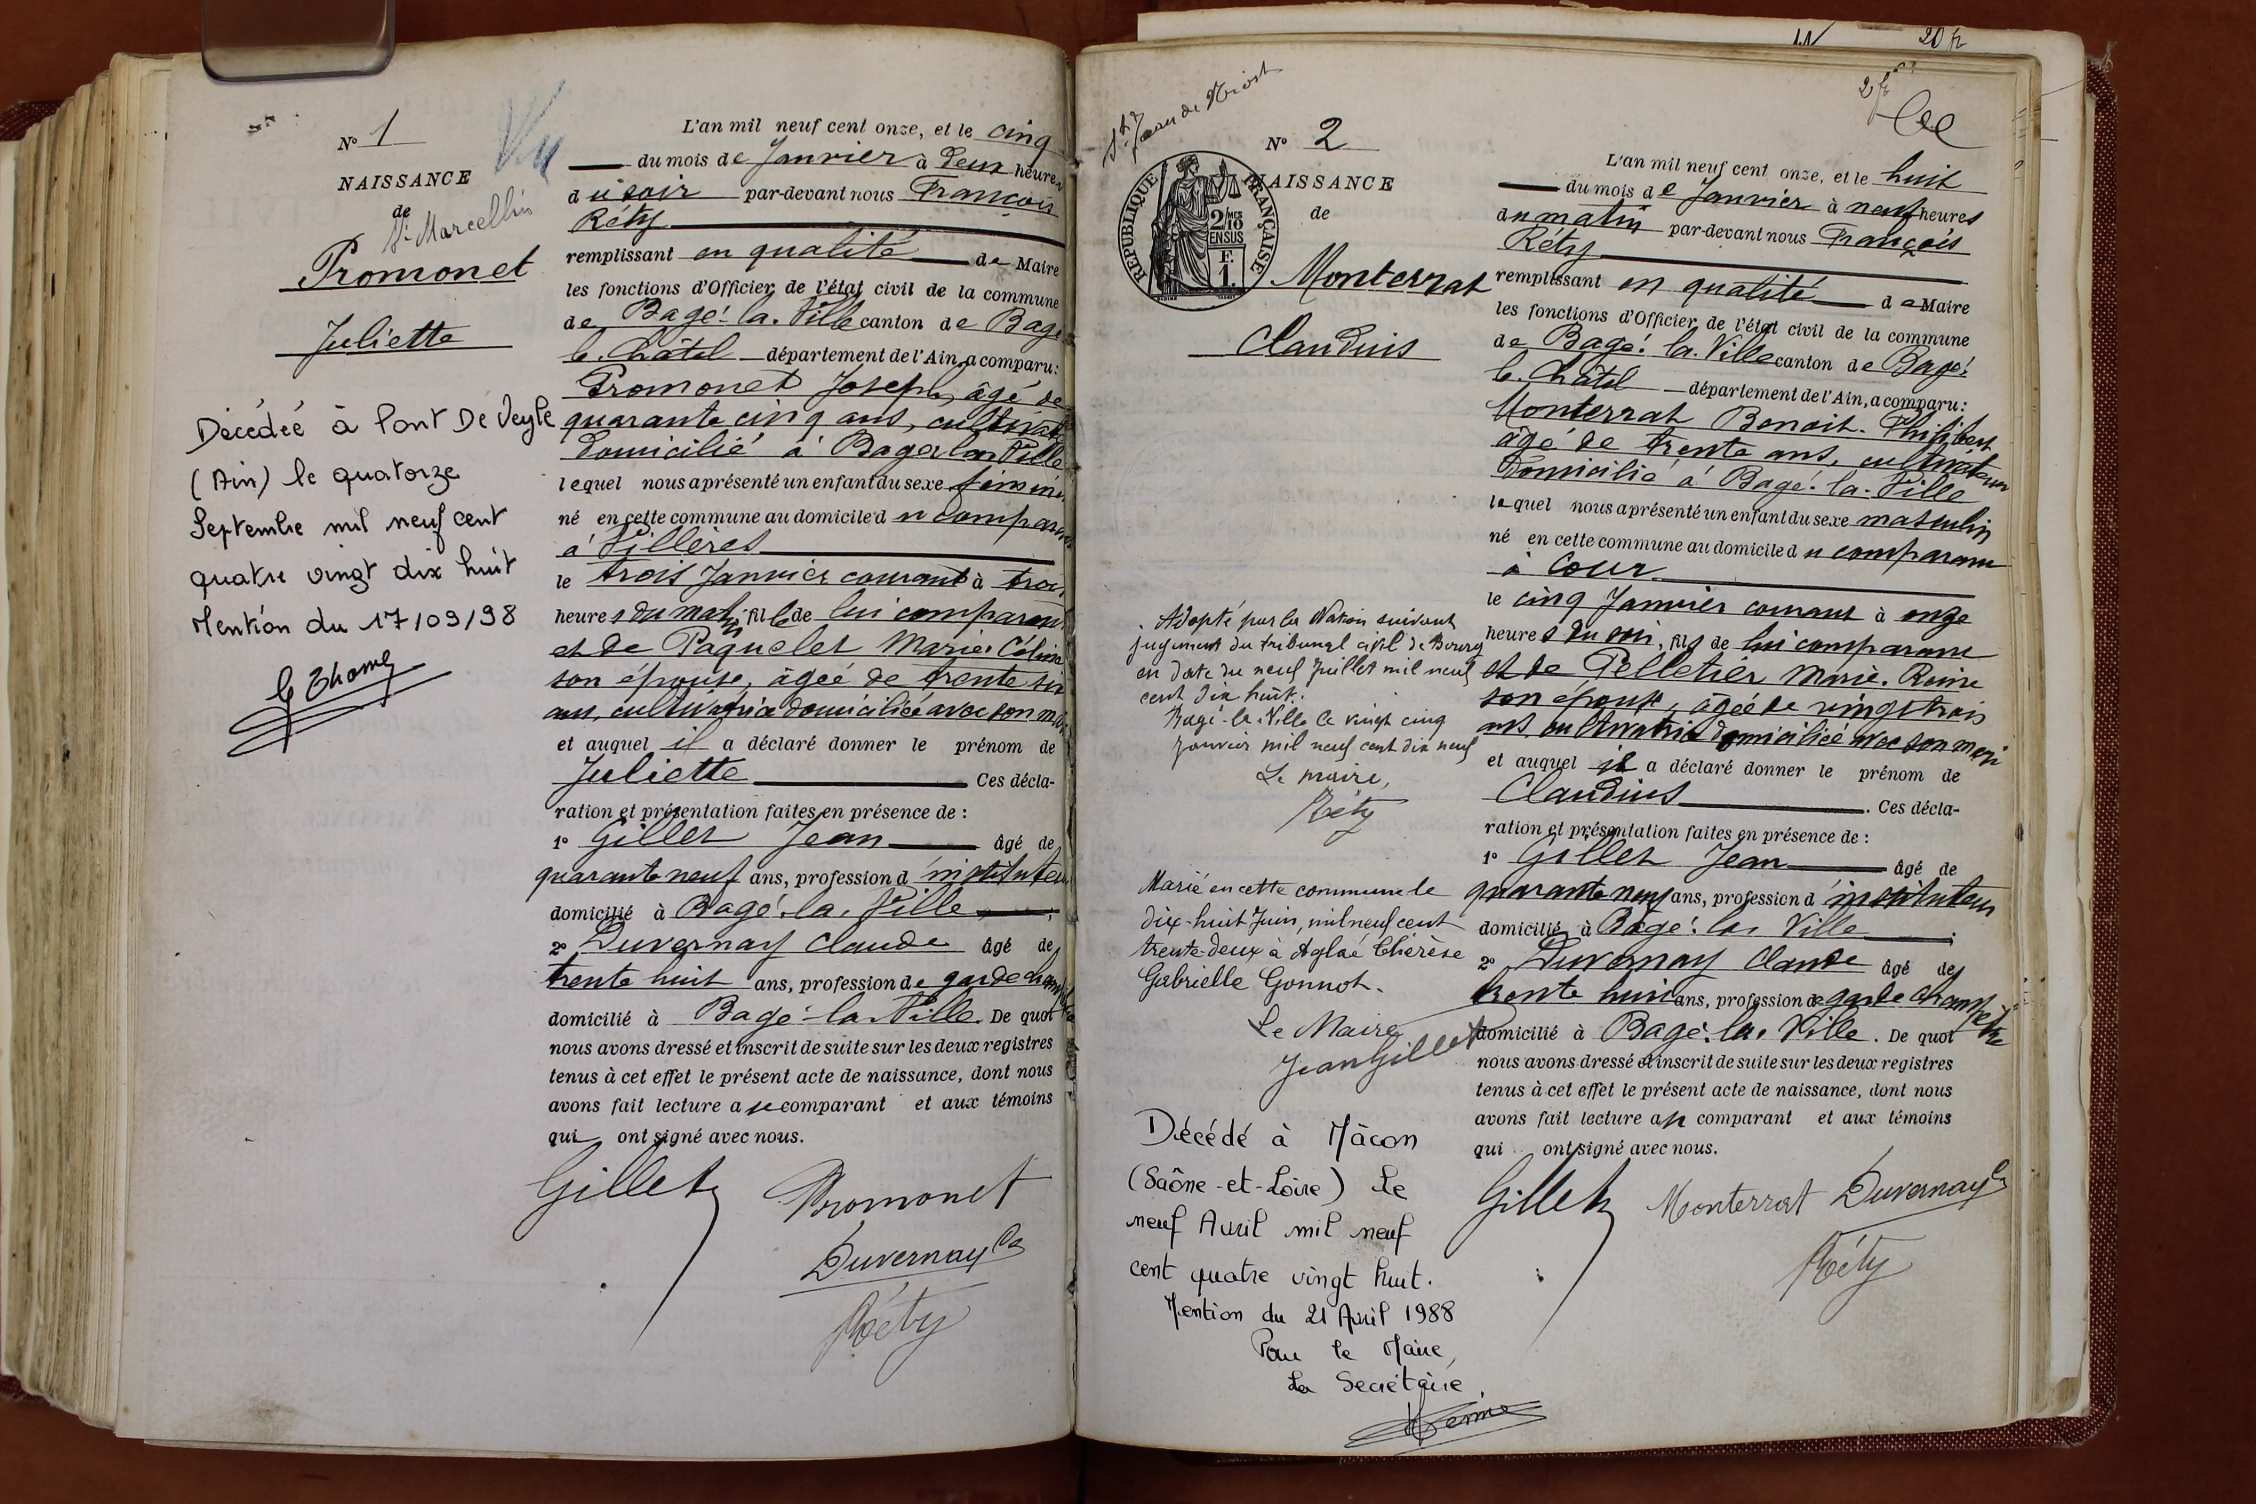 Nº 1
NAISSANCE
de
St Marcellin
Promonet
Juliette
Vu
Décédée à Pont De Veyle
(Ain) le quatorze
Septembre mil neuf cent
quatre vingt dix huit
Mention du 17/09/98
L'an mil neuf cent onze, et le cinq
du mois de Janvier à deux heures
du soir par-devant nous François
Réty
remplissant en qualité de Maire
les fonctions d'Officier de l'état civil de la commune
de Bagé-la-Ville canton de Bagé
le Châtel département de l'Ain, a comparu:
Promonet Joseph, âgé de
quarante cinq ans, cultivat
domicilié à Bagé-la-Ville
lequel nous a présenté un enfant du sexe fémini
né en cette commune au domicile du compara
à Villères
le trois Janvier courant à trois
heures du matin, fille de lui comparant
et de Paquelet Marie-Célin
son épouse, âgée de trente six
ans, cultivatrice domiciliée avec son mari
et auquel il a déclaré donner le prénom de
Juliette Ces décla-
ration et présentation faites en présence de :
1º Gillet Jean âgé de
quarante neuf ans, profession d'instituteu
domicilié à Bagé-la-Ville ;
2º Duvernay Claude âgé de
trente huit ans, profession de garde champ
domicilié à Bagé-la-Ville. De quoi
nous avons dressé et inscrit de suite sur les deux registres
tenus à cet effet le présent acte de naissance, dont nous
avons fait lecture au comparant et aux témoins
qui ont signé avec nous.
Gillet Promonet
Duvernay Cs
Réty
20 fr
2 fr
Nº 2
NAISSANCE
de
REPUBLIQUE FRANÇAISE
2/10 MES
EN SUS
F.
1.
Monterrat
Claudius
Adopté par la Nation suivant
jugement du tribunal civil de Bourg
en date du neuf Juillet mil neuf
cent dix huit.
Bagé-la-Ville le vingt cinq
janvier mil neuf cent dix neuf
Le maire,
Réty
Marié en cette commune le
dix-huit Juin, mil neuf cent
trente-deux à Aglaé Thérèse
Gabrielle Gonnot.
Le Maire
Jean Gillet
Décédé à Mâcon
(Saône-et-Loire) Le
neuf Avril mil neuf
cent quatre vingt huit.
Mention du 21 Avril 1988
Pour le Maire,
La Secrétaire,
L'an mil neuf cent onze, et le huit
du mois de Janvier à neuf heures
du matin par-devant nous François
Réty
remplissant en qualité de Maire
les fonctions d'Officier de l'état civil de la commune
de Bagé-la-Ville canton de Bagé
le Châtel département de l'Ain, a comparu:
Monterrat Benoit-Philibert
âgé de trente ans, cultivateur
domicilié à Bagé-la-Ville
lequel nous a présenté un enfant du sexe masculin
né en cette commune au domicile du comparant
à Cour
le cinq Janvier courant à onze
heures du soir, fils de lui comparant
et de Pelletier Marie-Reine
son épouse, âgée de vingt trois
ans, cultivatrice domiciliée avec son mari
et auquel il a déclaré donner le prénom de
Claudius. Ces décla-
ration et présentation faites en présence de :
1º Gillet Jean âgé de
quarante neuf ans, profession d'instituteur
domicilié à Bagé-la-Ville ;
2º Duvernay Claude âgé de
trente huit ans, profession de garde champêtre
domicilié à Bagé-la-Ville. De quoi
nous avons dressé et inscrit de suite sur les deux registres
tenus à cet effet le présent acte de naissance, dont nous
avons fait lecture au comparant et aux témoins
qui ont signé avec nous.
Gillet Monterrat Duvernay Cs
Réty